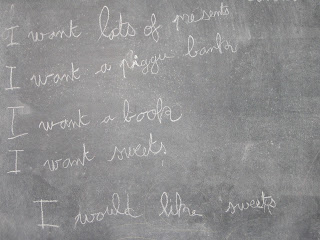 I want lots of presents
I want a piggy bank
I want a book
I want sweets
I would like sweets